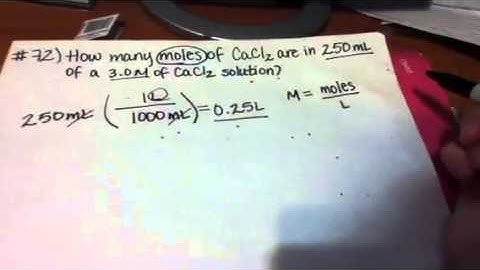 #72) How many moles of CaCl₂ are in 250mL
of a 3.0M of CaCl₂ solution?
250mL (1L/1000mL) = 0.25L
M = moles/L